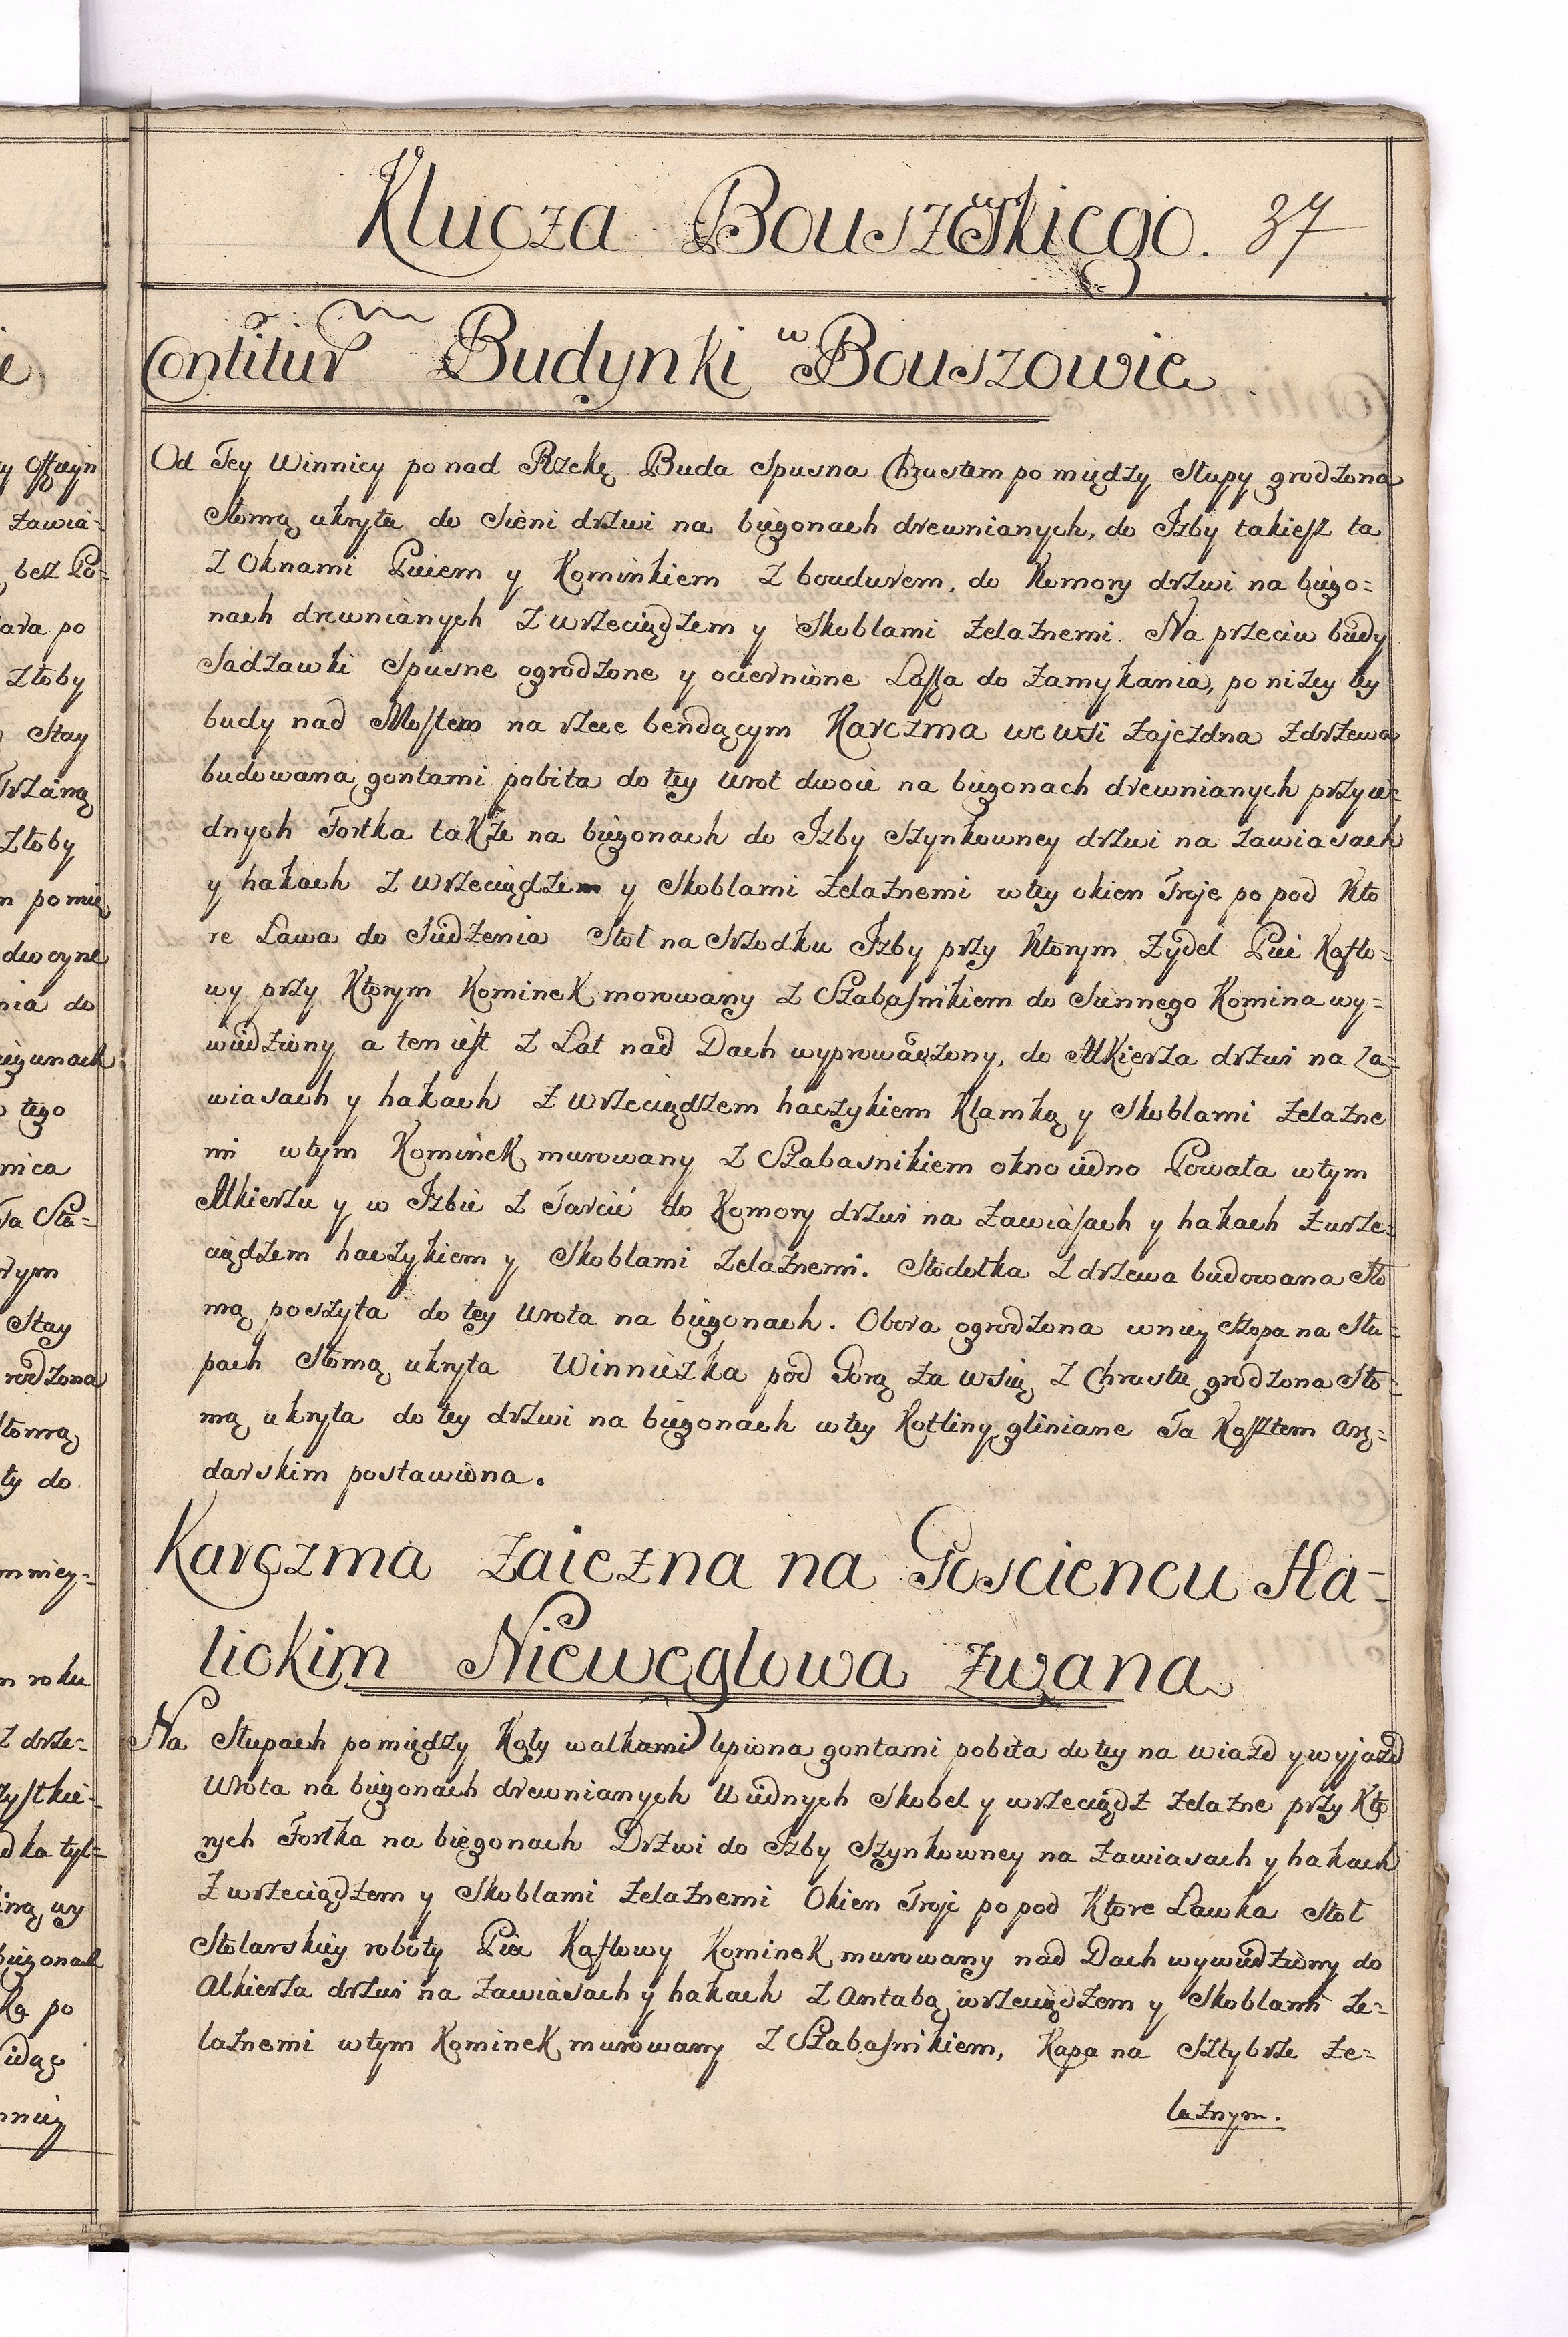 Klucza Bouszowskiego. 37
Contitur Budynki w Bouszowie
Od Tey Winnicy ponad Rzekę Buda Spusna Chrustem pomiędzy Słupy grodzona
Słomą ukryta do Sieni drzwi na biegonach drewnianych, do Izby takiesz ta
z Oknami Piciem y Kominkiem z bondurem, do Komory drzwi na biego=
nach drewnianych z wrzeciądzem y Skoblami zelaznemi. Na przeciw budy
Sadzawki Spusne ogrodzone y ociernione Lassa do zamykania, poniżey tey
budy nad Mostem na rzece bendącym Karczma we wsi zajezdna z drzewa
budowana gontami pobita do tey wrot dwoie na biegonach drewnianych przy ie=
dnych Fortka także na biegonach do Izby Szynkowney drzwi na zawiasach
y hakach z wrzeciądzem y Skoblami żelaznemi w tey okien Troje po pod Kto
re Ława do Siedzenia Stoł na Srzodku Izby przy Ktorym Zydel Piec Kaflo=
wy przy Ktorym Kominek morowany z Szabasnikiem do Siennego Komina wy=
wiedziony a ten iest z Lat nad Dach wyprowadzony, do Alkierza drzwi na Za=
wiasach y hakach z wrzeciądzem haczykiem Klamką y Skoblami żelazne
mi w tym Kominek murowany z Szabasnikiem okno iedno Powała w tym
Alkierzu y w Izbie z Tarcic do Komory drzwi na zawiasach y hakach z wrze=
ciądzem haczykiem y Skoblami zelaznemi. Stodołka z drzewa budowana Sło
mą poszyta do tey wrota na biegonach. Obora ogrodzona w niey Szopa na Słu=
pach Słomą ukryta Winniczka pod Gorą za wsią z Chrustu grodzona Sło=
mą ukryta do tey drzwi na biegonach w tey Kotliny gliniane Ta Kosztem arę=
darskim postawiona.
Karczma zaiezna na Gosciencu Ha=
lickim Niewęglowa zwana
Na Słupach pomiędzy Koły walkami lepiona gontami pobita do tey na wiazd y wyjazd
wrota na biegonach drewnianych u iednych Skobel y wrzeciądz żelazne przy Kto
rych Fortka na biegonach Drzwi do Izby Szynkowney na zawiasach y hakach
z wrzeciądzem y Skoblami żelaznemi Okien Troje po pod Ktore Ławka Stoł
Stolarskiey roboty Piec Kaflowy Kominek murowany nad Dach wywiedziony do
Alkierza drzwi na zawiasach y hakach z Antabą wrzeciądzem y Skoblami że=
laznemi w tym Kominek murowany z Szabasnikiem, Kapa na Sztybrze że=
laznym.